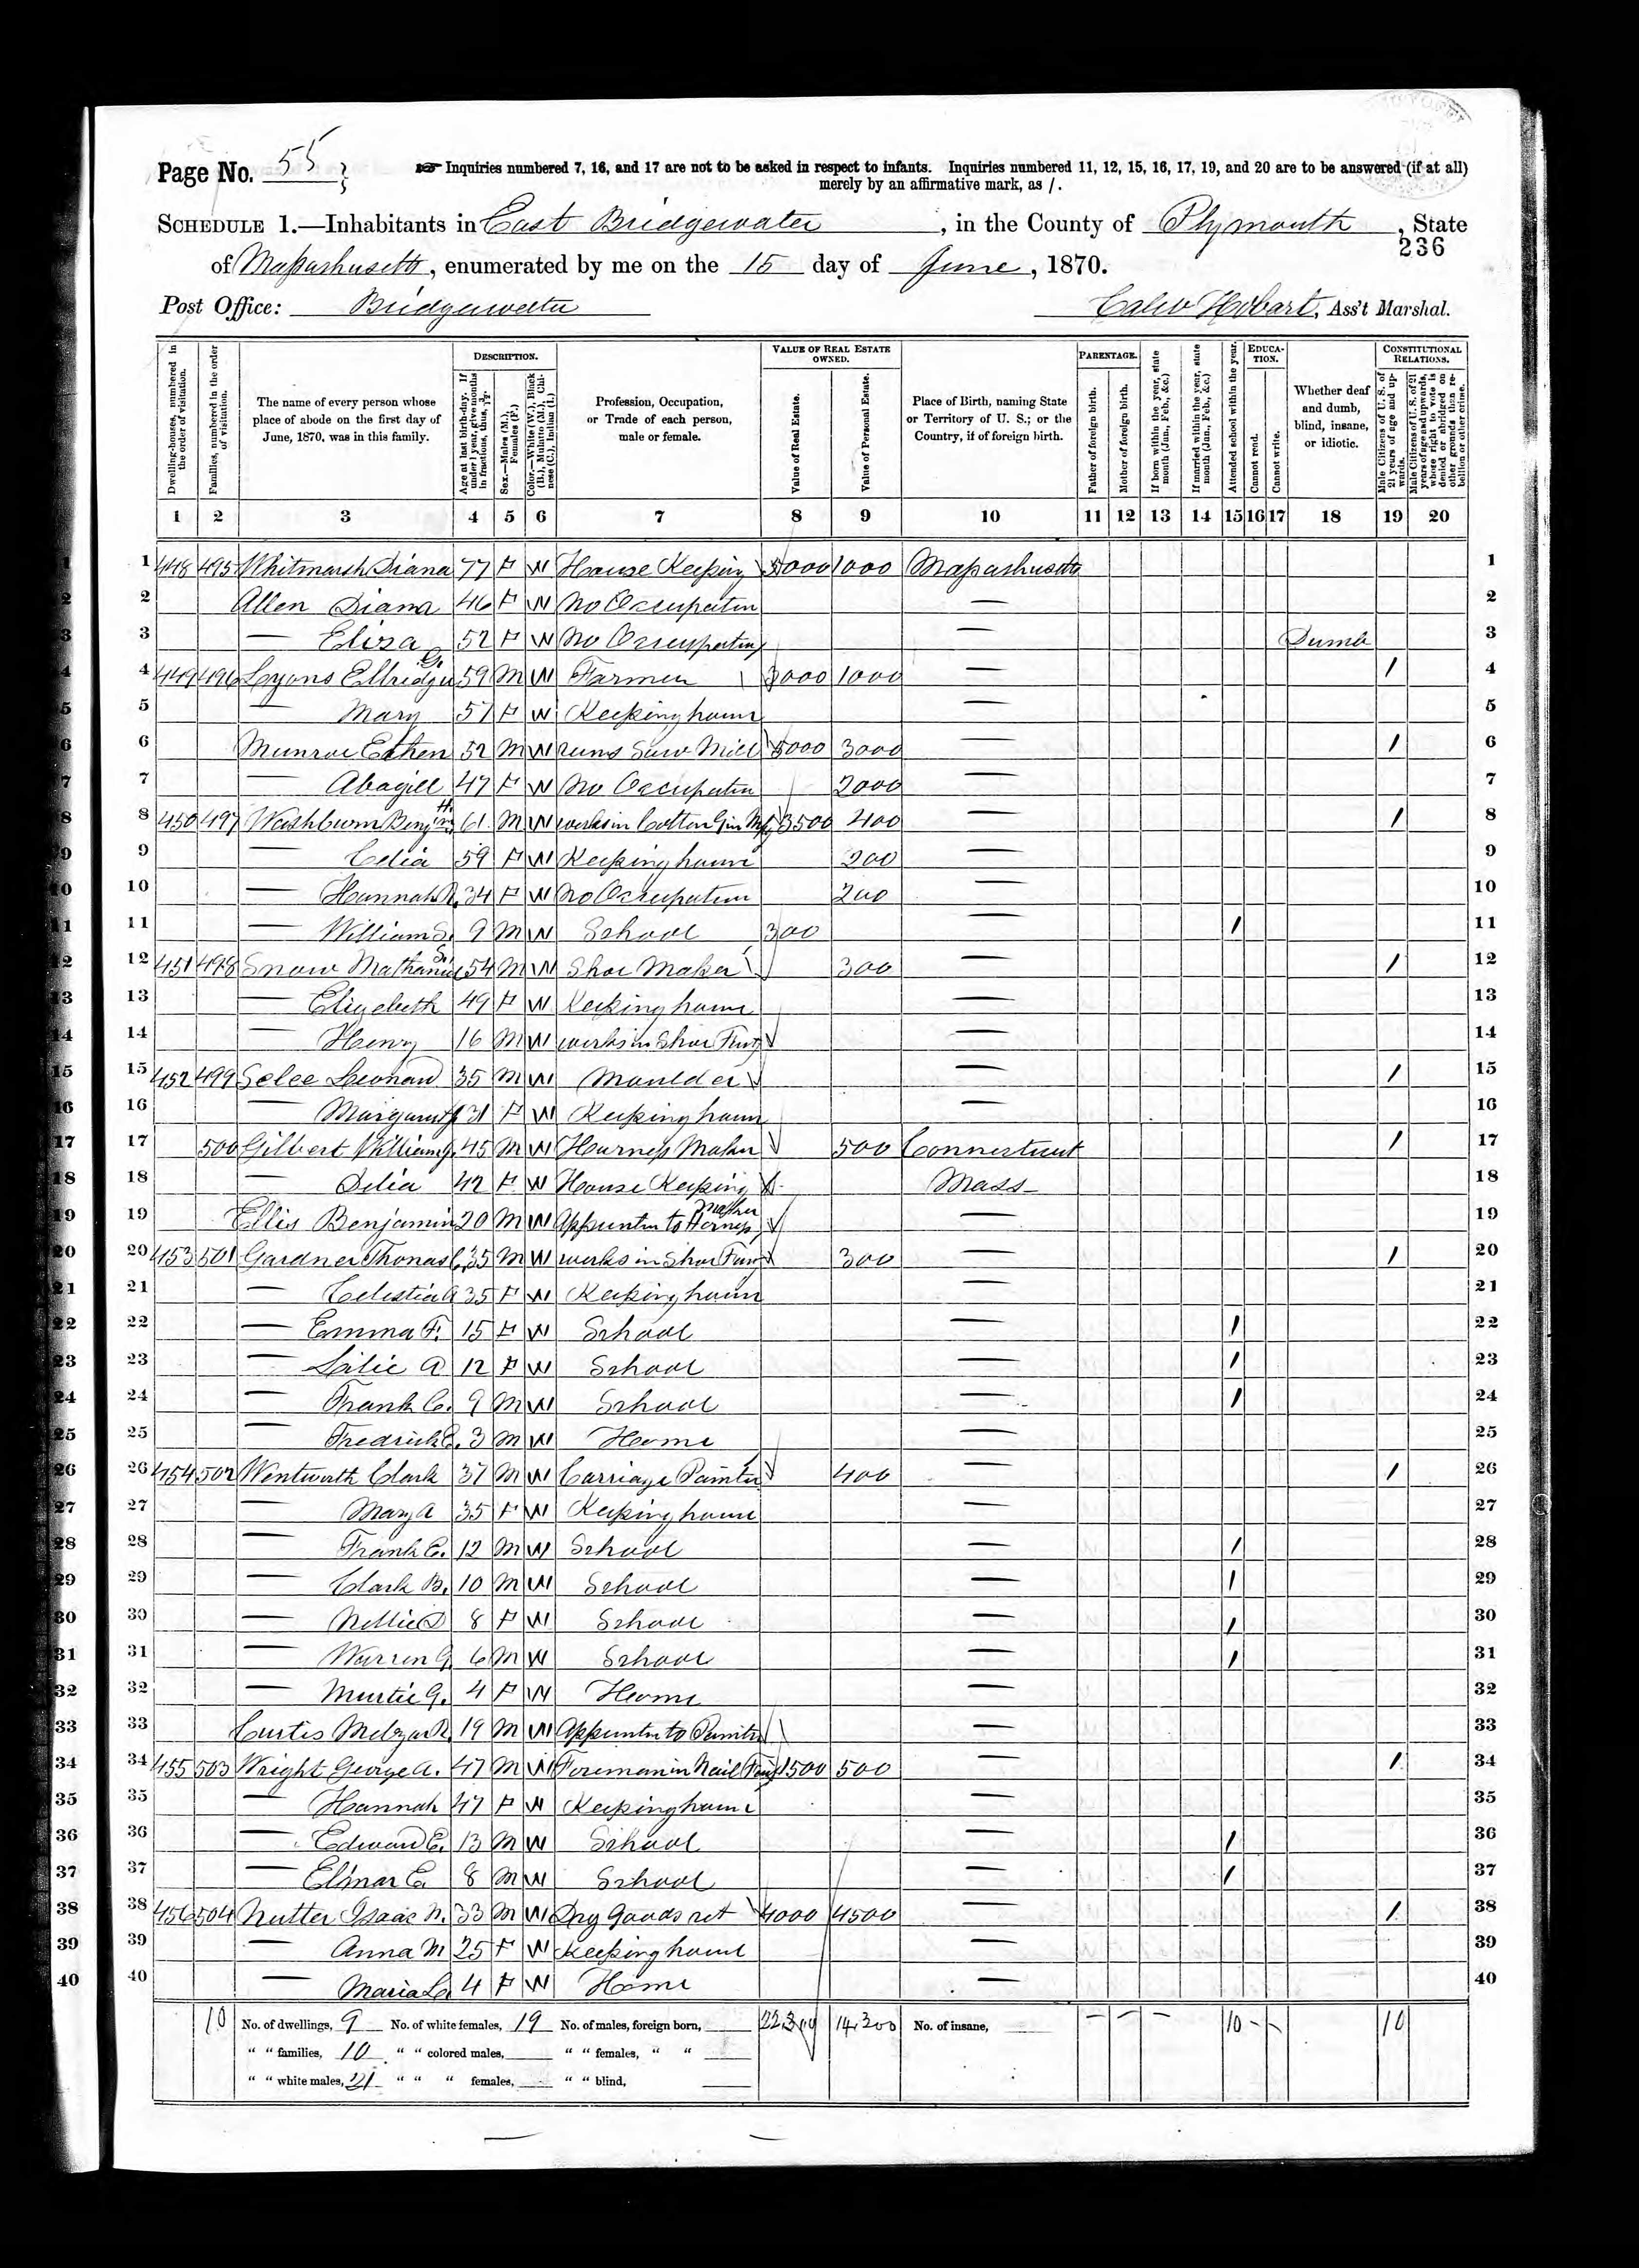 Page No. 55
☞ Inquiries numbered 7, 16, and 17 are not to be asked in respect to infants. Inquiries numbered 11, 12, 15, 16, 17, 19, and 20 are to be answered (if at all)
merely by an affirmative mark, as /.
SCHEDULE 1.—Inhabitants in East Bridgewater, in the County of Plymouth, State
236
of Massachusetts, enumerated by me on the 15 day of June, 1870.
Post Office: Bridgewater
Caleb Hobart, Ass't Marshal.
Dwelling-houses, numbered in the order of visitation.
Families, numbered in the order of visitation.
The name of every person whose place of abode on the first day of June, 1870, was in this family.
DESCRIPTION.
Age at last birth-day. If under 1 year, give months in fractions, thus, 3/12.
Sex.—Males (M.), Females (F.)
Color.—White (W.), Black (B.), Mulatto (M.), Chinese (C.), Indian (I.)
Profession, Occupation, or Trade of each person, male or female.
VALUE OF REAL ESTATE OWNED.
Value of Real Estate.
Value of Personal Estate.
Place of Birth, naming State or Territory of U. S.; or the Country, if of foreign birth.
PARENTAGE.
Father of foreign birth.
Mother of foreign birth.
If born within the year, state month (Jan., Feb., &c.)
If married within the year, state month (Jan., Feb., &c.)
Attended school within the year.
EDUCATION.
Cannot read.
Cannot write.
Whether deaf and dumb, blind, insane, or idiotic.
CONSTITUTIONAL RELATIONS.
Male Citizens of U. S. of 21 years of age and upwards.
Male Citizens of U. S. of 21 years of age and upwards, whose right to vote is denied or abridged on other grounds than rebellion or other crime.
1 2 3 4 5 6 7 8 9 10 11 12 13 14 15 16 17 18 19 20
1 448 495 Whitmarsh Diana 77 F W House Keeping 5000 1000 Massachusetts 1
2 Allen Diana 46 F W No Occupation — 2
3 — Eliza 52 F W No Occupation — Dumb 3
4 449 496 Lyons Ellridge G. 59 M W Farmer 3000 1000 — 1 4
5 — Mary 57 F W Keeping house — 5
6 Munroe Ethen 52 M W runs Saw Mill 5000 3000 — 1 6
7 — Abagill 47 F W No Occupation 2000 — 7
8 450 497 Washburn Benjm H. 61 M W works in Cotton Gin Mfy 3500 400 — 1 8
9 — Celia 59 F W Keeping house 200 — 9
10 — Hannah R. 34 F W No Occupation 200 — 10
11 — William S. 9 M W School 300 — 1 11
12 451 498 Snow Nathaniel S. 54 M W Shoe Maker 300 — 1 12
13 — Elizebeth 49 F W Keeping house — 13
14 — Henry 16 M W works in Shoe Facty — 14
15 452 499 Selee Leonard 35 M W Moulder — 1 15
16 — Margaret 31 F W Keeping house — 16
17 500 Gilbert William J. 45 M W Harness Maker 500 Connecticut 1 17
18 — Delia 42 F W House Keeping Mass 18
19 Ellis Benjamin 20 M W Apprentice to Harness Maker — 19
20 453 501 Gardner Thomas C. 35 M W works in Shoe Facy 300 — 1 20
21 — Celestia A 35 F W Keeping house — 21
22 — Emma F. 15 F W School — 1 22
23 — Lilie A 12 F W School — 1 23
24 — Frank C. 9 M W School — 1 24
25 — Fredrick 3 M W Home — 25
26 454 502 Wentworth Clark 37 M W Carriage Painter 400 — 1 26
27 — Mary A 35 F W Keeping house — 27
28 — Frank E. 12 M W School — 1 28
29 — Clark B. 10 M W School — 1 29
30 — Nellie D 8 F W School — 1 30
31 — Warren G. 6 M W School — 1 31
32 — Murtie G. 4 F W Home — 32
33 Curtis Melzar R. 19 M W Apprentice to Painter — 33
34 455 503 Wright George A. 47 M W Foreman in Nail Facy 1500 500 — 1 34
35 — Hannah 47 F W Keeping house — 35
36 — Edward E. 13 M W School — 1 36
37 — Elmar E. 8 M W School — 1 37
38 456 504 Nutter Isaac N. 33 M W Dry Goods ret 4000 4500 — 1 38
39 — Anna M 25 F W Keeping house — 39
40 — Maria L. 4 F W Home — 40
10 No. of dwellings, 9 No. of white females, 19 No. of males, foreign born, 22300 14,300 No. of insane, 10 10
" " families, 10 " " colored males, " " females, " "
" " white males, 21 " " " females, " " blind,